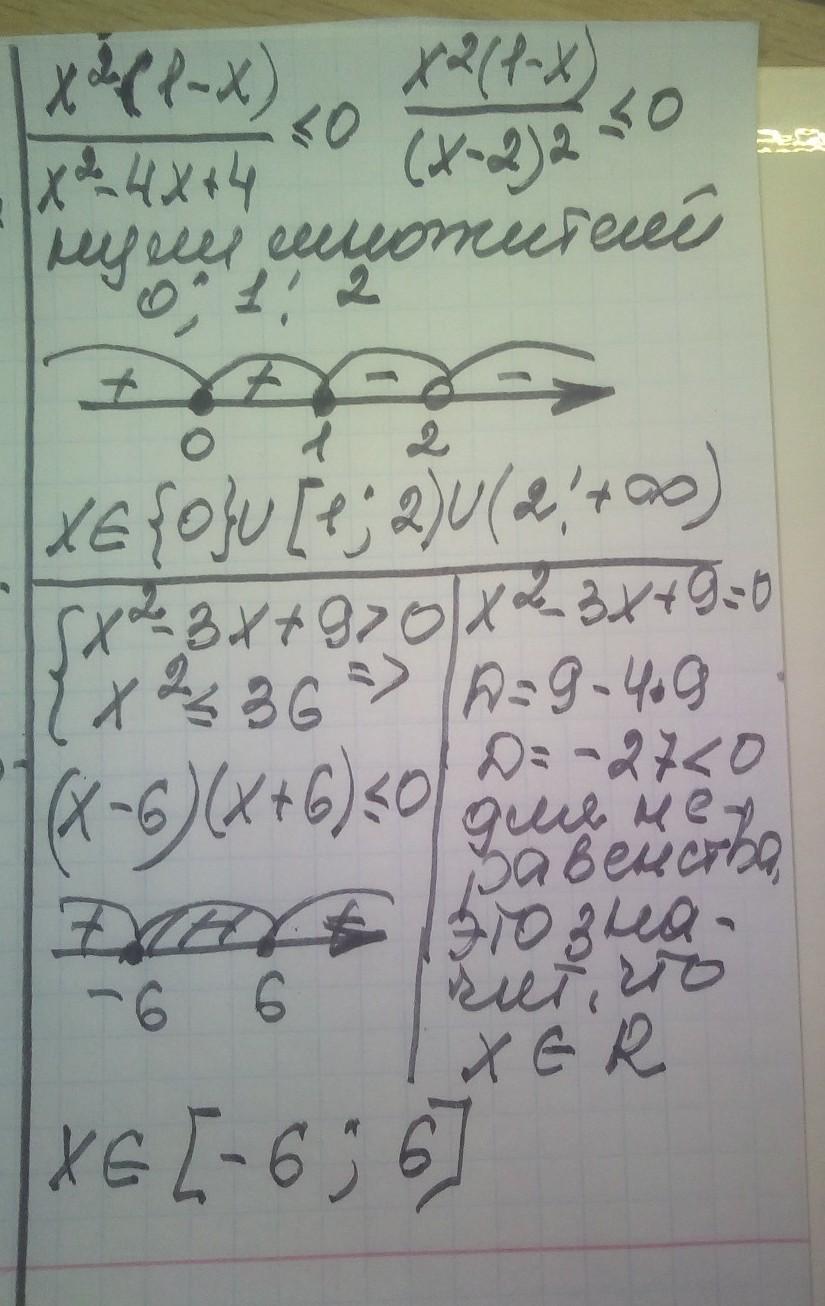 x²(1-x)/x²-4x+4 ≤0 x²(1-x)/(x-2)² ≤0
нули множителей
0; 1; 2
+ + - -
0 1 2
x∈{0}∪[1; 2)∪(2; +∞)
{x²-3x+9>0
x²≤36 =>
(x-6)(x+6)≤0
+ +
-6 6
x²-3x+9=0
D=9-4•9
D=-27<0
для не-
равенства,
это зна-
чит, что
x∈R
x∈[-6; 6]